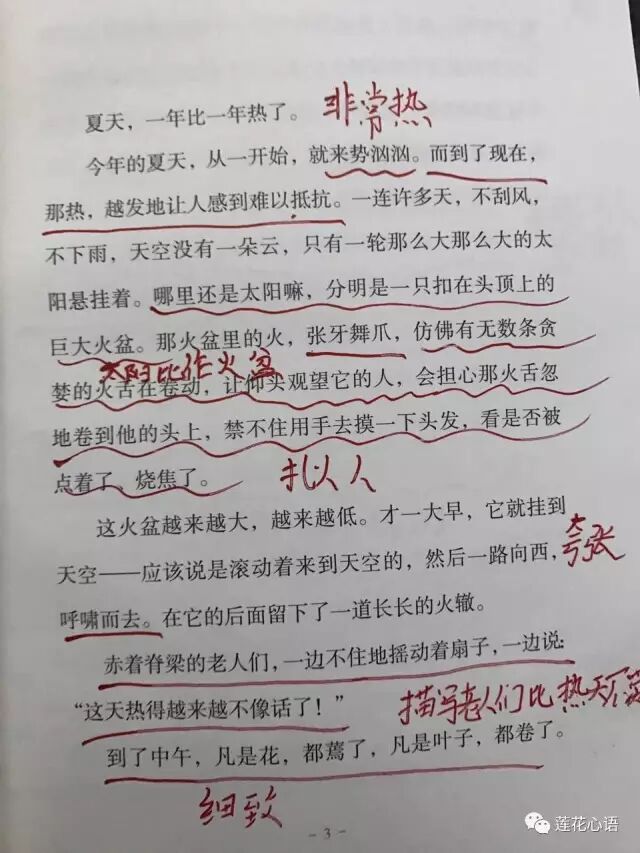 夏天，一年比一年热了。 非常热
今年的夏天，从一开始，就来势汹汹。而到了现在，
那热，越发地让人感到难以抵抗。一连许多天，不刮风，
不下雨，天空没有一朵云，只有一轮那么大那么大的太
阳悬挂着。哪里还是太阳嘛，分明是一只扣在头顶上的
巨大火盆。那火盆里的火，张牙舞爪，仿佛有无数条贪
太阳比作火盆
婪的火舌在卷动，让仰头观望它的人，会担心那火舌忽
地卷到他的头上，禁不住用手去摸一下头发，看是否被
点着了、烧焦了。
这火盆越来越大，越来越低。才一大早，它就挂到
天空——应该说是滚动着来到天空的，然后一路向西，
夸张
呼啸而去。在它的后面留下了一道长长的火辙。
赤着脊梁的老人们，一边不住地摇动着扇子，一边说：
“这天热得越来越不像话了！”
描写老人们比热天
到了中午，凡是花，都蔫了，凡是叶子，都卷了。
细致
- 3 -
莲花心语